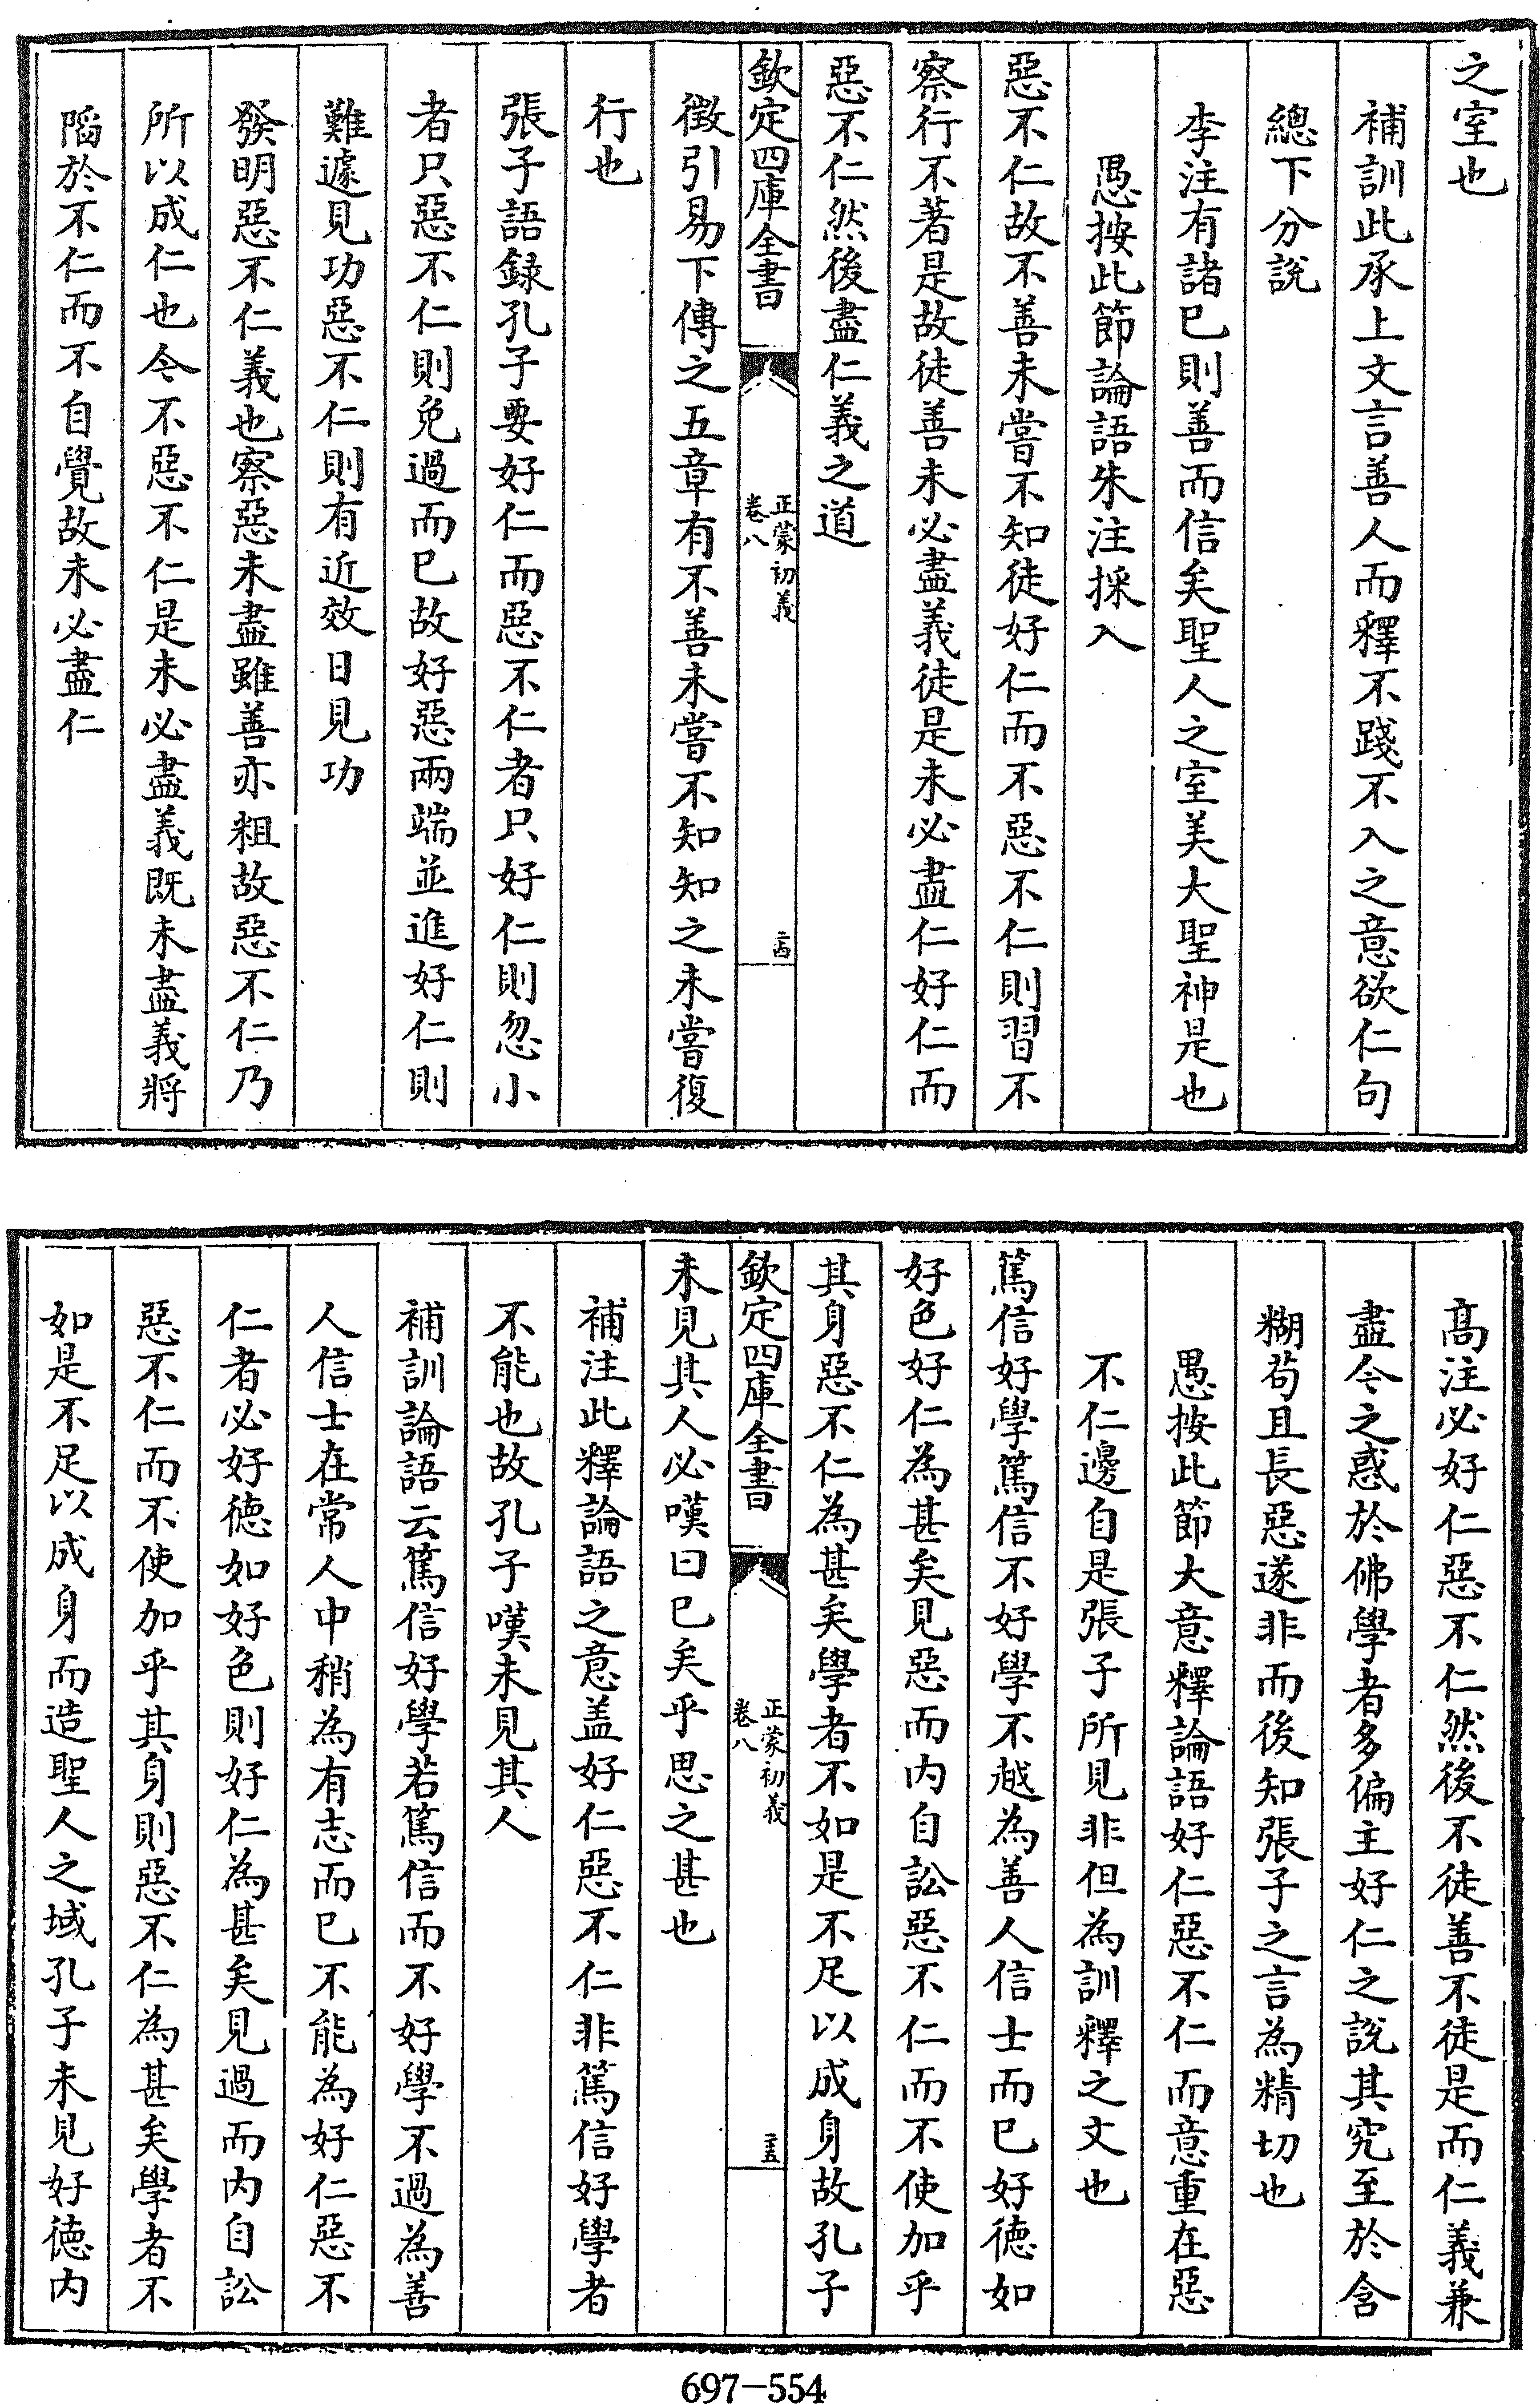 之室也
補訓此承上文言善人而釋不踐不入之意欲仁句
總下分説
李注有諸已則善而信矣聖人之室美大聖神是也
愚按此節論語朱注採入
惡不仁故不善未嘗不知徒好仁而不惡不仁則習不
察行不著是故徒善未必盡義徒是未必盡仁好仁而
惡不仁然後盡仁義之道
欽定四庫全書
正蒙初義
卷八
二十四
徴引易下傳之五章有不善未嘗不知知之未嘗復
行也
張子語録孔子要好仁而惡不仁者只好仁則忽小
者只惡不仁則免過而已故好惡兩端並進好仁則
難遽見功惡不仁則有近效日見功
發明惡不仁義也察惡未盡雖善亦粗故惡不仁乃
所以成仁也今不惡不仁是未必盡義既未盡義將
陷於不仁而不自覺故未必盡仁
髙注必好仁惡不仁然後不徒善不徒是而仁義兼
盡今之惑於佛學者多偏主好仁之説其究至於含
糊茍且長惡遂非而後知張子之言為精切也
愚按此節大意釋論語好仁惡不仁而意重在惡
不仁邊自是張子所見非但為訓釋之文也
篤信好學篤信不好學不越為善人信士而已好徳如
好色好仁為甚矣見惡而内自訟惡不仁而不使加乎
其身惡不仁為甚矣學者不如是不足以成身故孔子
欽定四庫全書
正蒙初義
卷八
二十五
未見其人必嘆曰已矣乎思之甚也
補注此釋論語之意盖好仁惡不仁非篤信好學者
不能也故孔子嘆未見其人
補訓論語云篤信好學若篤信而不好學不過為善
人信士在常人中稍為有志而已不能為好仁惡不
仁者必好徳如好色則好仁為甚矣見過而内自訟
惡不仁而不使加乎其身則惡不仁為甚矣學者不
如是不足以成身而造聖人之域孔子未見好徳内
697-554